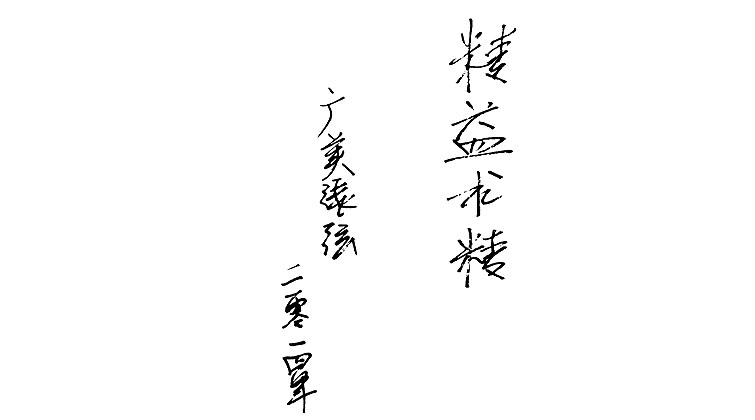 精益求精
广美張弦
二零一四年